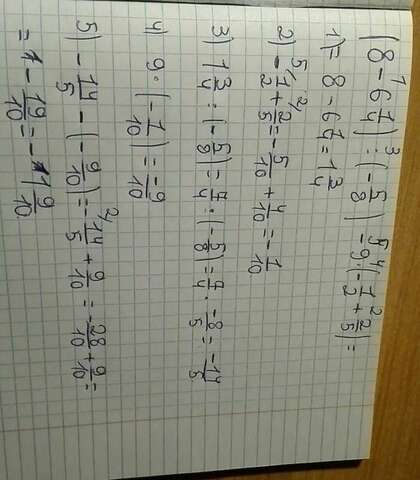 (8 - 6 1/4) : (-5/8) - 9·(-1/2 + 2/5) =
1) = 8 - 6 1/4 = 1 3/4
2) -1/2 + 2/5 = -5/10 + 4/10 = -1/10
3) 1 3/4 : (-5/8) = 7/4 : (-5/8) = 7/4 · -8/5 = -14/5
4) 9·(-1/10) = -9/10
5) -14/5 - (-9/10) = -14/5 + 9/10 = -28/10 + 9/10 =
= -19/10 = -1 9/10